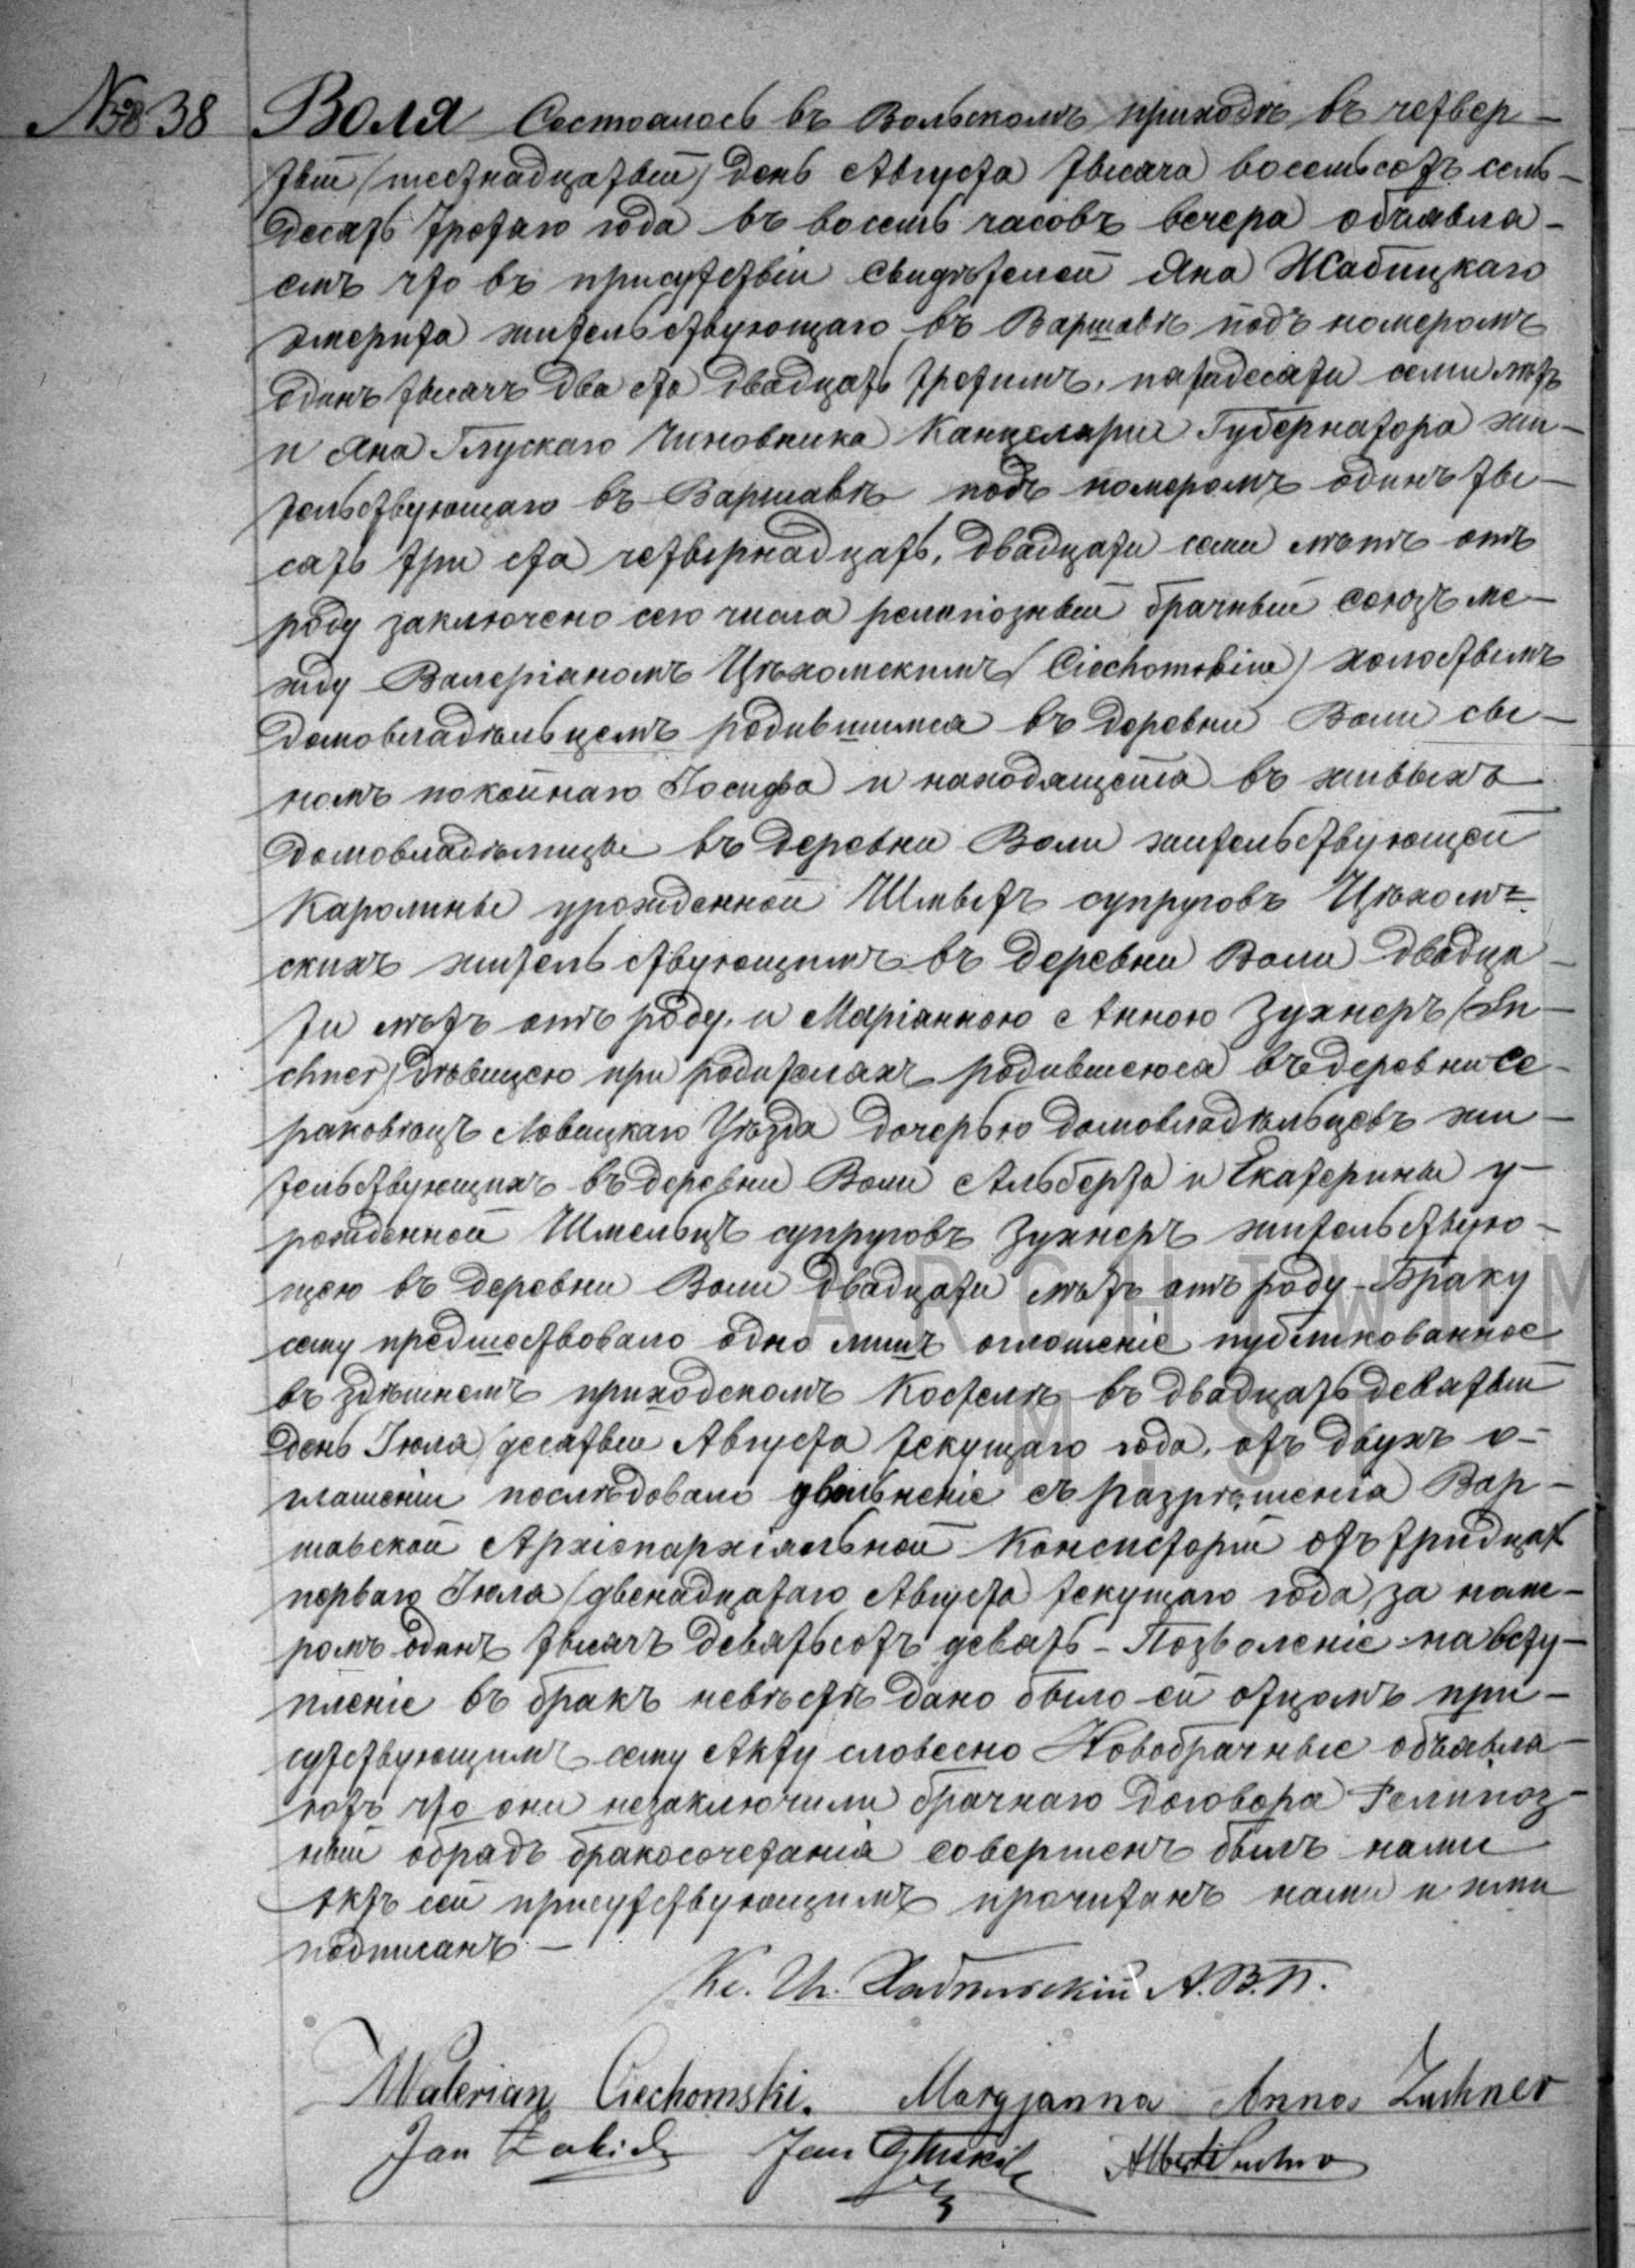 № 38 Воля Состоялось въ Вольскомъ приходѣ въ четвер-
тый (шестнадцатый) день Августа тысяча восемьсотъ семь-
десятъ третяго года въ восемь часовъ вечера объявля-
емъ что въ присутствіи свидѣтелей Яна Жабицкаго
эмерита жительствующаго въ Варшавѣ подъ номеромъ
одинъ тысячъ два ста двадцать третимъ, пятадесяти семи лѣтъ
и Яна Глускаго Чиновника Канцеляріи Губернатора жи-
тельствующаго въ Варшавѣ подъ номеромъ одинъ ты-
сачъ три ста четвернадцать, двадцати семи лѣтъ отъ
роду заключено сего числа религіозный брачный союзъ ме-
жду Валеріаномъ Цѣхомскимъ (Ciechomskim) холостымъ
домовладѣльцемъ родившимся въ деревни Воли сы-
номъ покойнаго Іосифа и находящейся въ живыхъ
домовладѣлицы въ деревни Воли жительствующей
Каролины урожденной Шмытъ супруговъ Цѣхом=
скихъ жительствующимъ въ деревни Воли двадца-
ти лѣтъ отъ роду, и Маріанною Анною Зухнеръ (Su-
chner) дѣвицею при родителяхъ родившеюся въ деревни Се-
раковѣцъ Ловицкаго Уѣзда дочерью домовладѣльцевъ жи-
тельствующихъ въ деревни Воли Альберта и Екатерины у-
рожденной Шмельцъ супруговъ Зухнеръ жительствую-
щею въ деревни Воли двадцати лѣтъ отъ роду - Браку
сему предшествовало одно лишъ оглошеніе публикованное
въ здѣшнемъ приходскомъ Костелѣ въ двадцать девятый
день Іюля (десятый Августа текущаго года, отъ двухъ о-
глашеніи послѣдовало увольненіе съ разрѣшенія Вар-
шавской Архіепархіяльной Консисторіи отъ тридцать
перваго Іюля (двенадцатаго Августа текущаго года, за номе-
ромъ одинъ тысячъ девятьсотъ девять - Позволеніе на всту-
пленіе въ бракъ невѣстѣ дано было ей отцомъ при-
сутствующимъ сему Акту словесно Новобрачные объявля-
ютъ что они незаключили брачнаго договора Религіоз-
ный обрядъ бракосочетанія совершенъ былъ нами
Актъ сей присутствующимъ прочитанъ нами и ими
подписанъ -
Кс. А.В.П.
Walerian Ciechomski. Maryjanna Anna Zuchner
Jan Żabicki Jan Głuski Albert Suchner
ARCHIWUM
M. ST